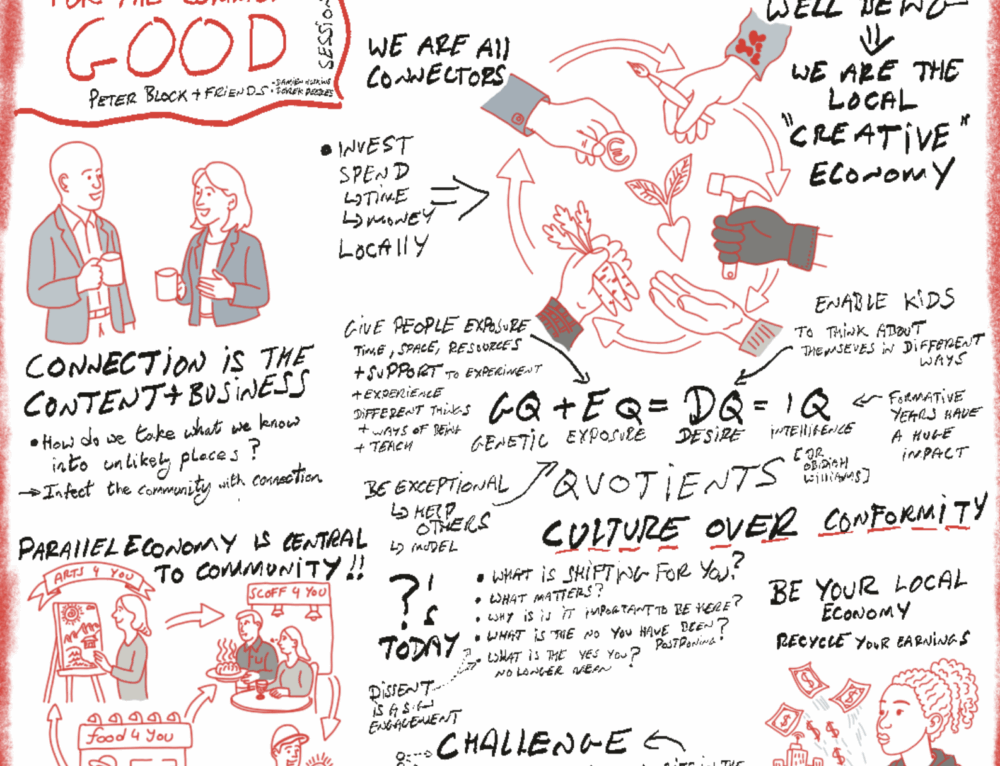 GOOD
SESSION
PETER BLOCK + FRIENDS
WE ARE All
CONNECTORS
• INVEST
SPEND
↳TIME
↳MONEY
LOCAllY
WELL BEING
WE ARE THE
LOCAL
"CREATIVE"
ECONOMY
CONNECTION iS THE
CONTENT + BUSINESS
• How do we take what we know
into unlikely places?
→ Infect the community with connection
GIVE PEOPLE EXPOSURE
TIME, SPACE, RESOURCES
+ SUPPORT TO EXPERIMENT
+ EXPERIENCE
DIFFERENT THINGS
+ WAYS OF BEING
+ TEACH
ENABLE KiDS
TO THINK ABOUT
THEMSEVES IN DIFFERENT
WAYS
GQ + EQ = DQ = IQ
GENETIC EXPOSURE DESIRE INTELLIGENCE
← FORMATIVE
YEARS HAVE
A HUGE
IMPACT
QUOTIENTS
[DR
OBIDIAH
WILLIAMS]
BE EXCEPTIONAL
↳ HELP
OTHERS
↳ MODEL
CULTURE OVER CONFORMITY
PARAllEL ECONOMY iS CENTRAL
TO COMMUNITY !!
ARTS 4 YOU
SCOFF 4 YOU
food 4 You
?'s
TODAY
• WHAT IS SHIFTING FOR YOU?
• WHAT MATTERS?
• WHY IS IS IT IMPORTANT TO BE HERE?
• WHAT IS THE NO YOU HAVE BEEN POSTPONING?
• WHAT IS THE YES YOU?
NO LONGER MEAN
DISSENT
IS A SIGN
ENGAGEMENT
BE YOUR LOCAL
ECONOMY
RECYCLE YOUR EARNINGS
CHALLENGE